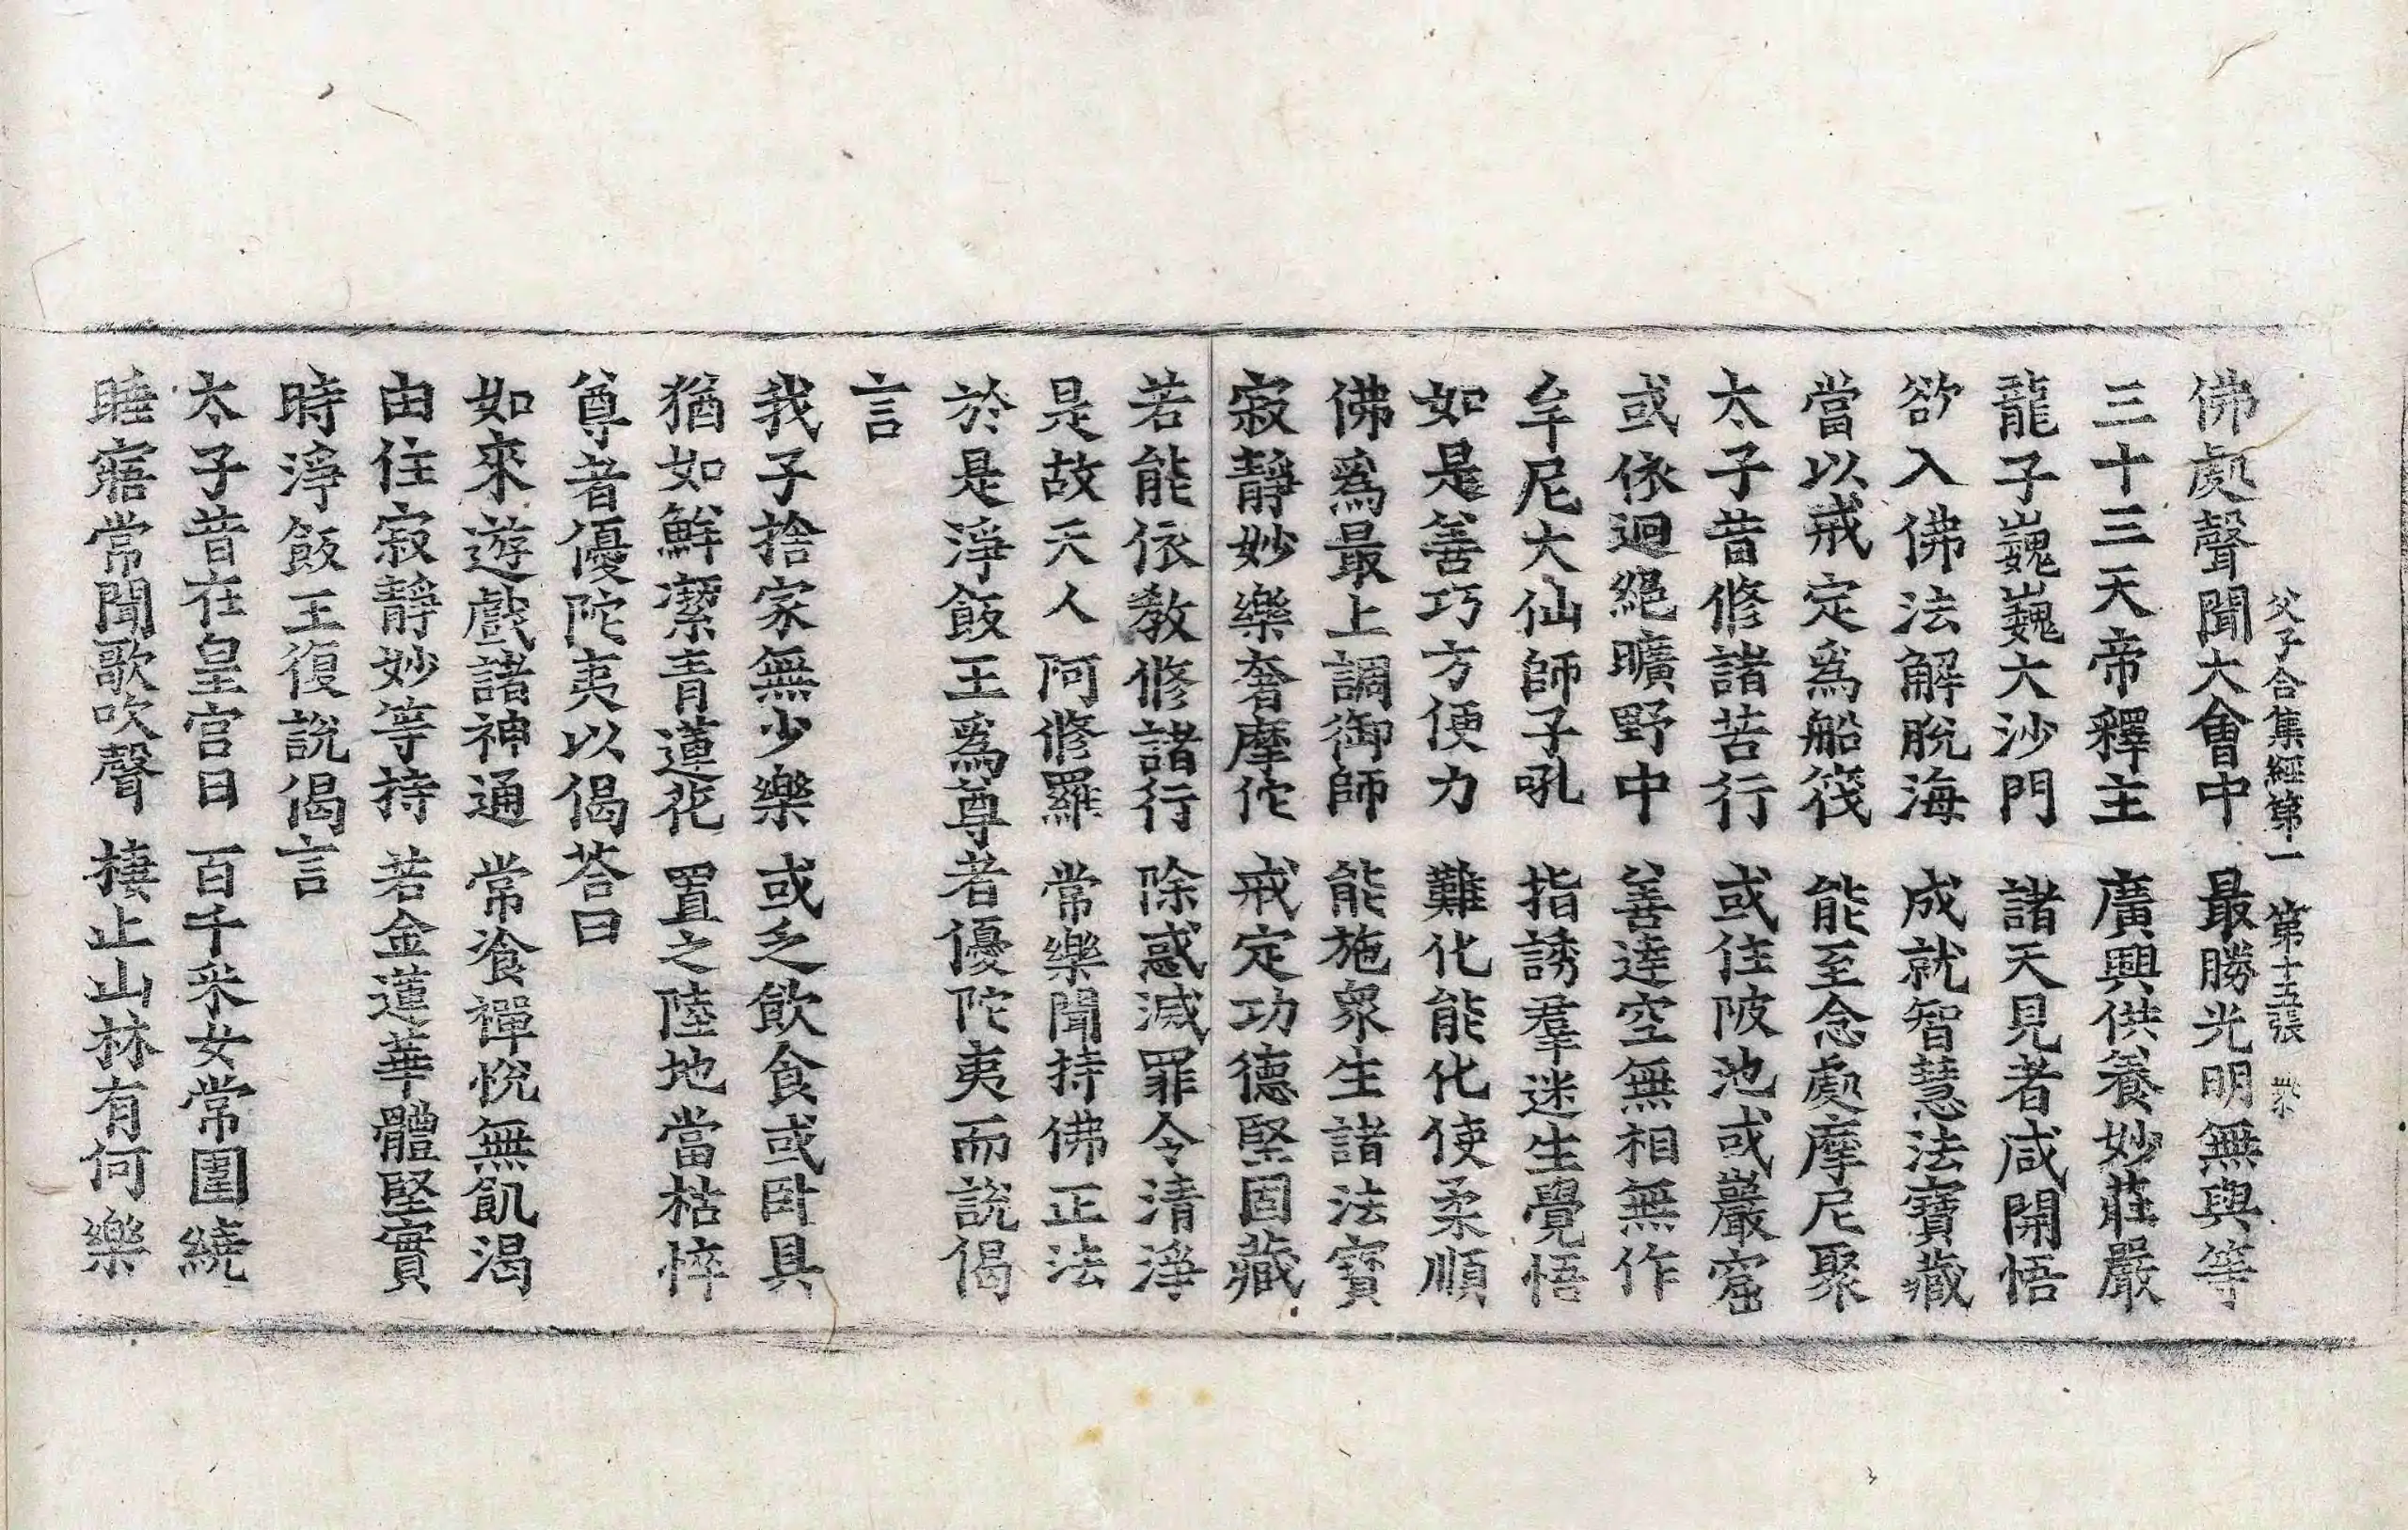 父子合集經第一　第十五張
佛處聲聞大會中　最勝光明無與等
三十三天帝釋主　廣興供養妙莊嚴
龍子巍巍大沙門　諸天見者咸開悟
欲入佛法解脫海　成就智慧法寶藏
當以戒定爲船筏　能至念處摩尼聚
太子昔修諸苦行　或住陂池或巖窟
或依迥絕曠野中　善達空無相無作
牟尼大仙師子吼　指誘羣迷生覺悟
如是善巧方便力　難化能化使柔順
佛爲最上調御師　能施衆生諸法寶
寂靜妙樂奢摩佗　戒定功德堅固藏
若能依教修諸行　除惑滅罪令清淨
是故天人阿修羅　常樂聞持佛正法
於是淨飯王爲尊者優陀夷而說偈
言
我子捨家無少樂　或乏飲食或卧具
猶如鮮潔青蓮花　置之陸地當枯悴
尊者優陀夷以偈荅曰
如來遊戲諸神通　常飡禪悅無飢渴
由住寂靜妙等持　若金蓮華體堅實
時淨飯王復說偈言
太子昔在皇宮日　百千釆女常圍繞
睡寤常聞歌吹聲　捿止山林有何樂